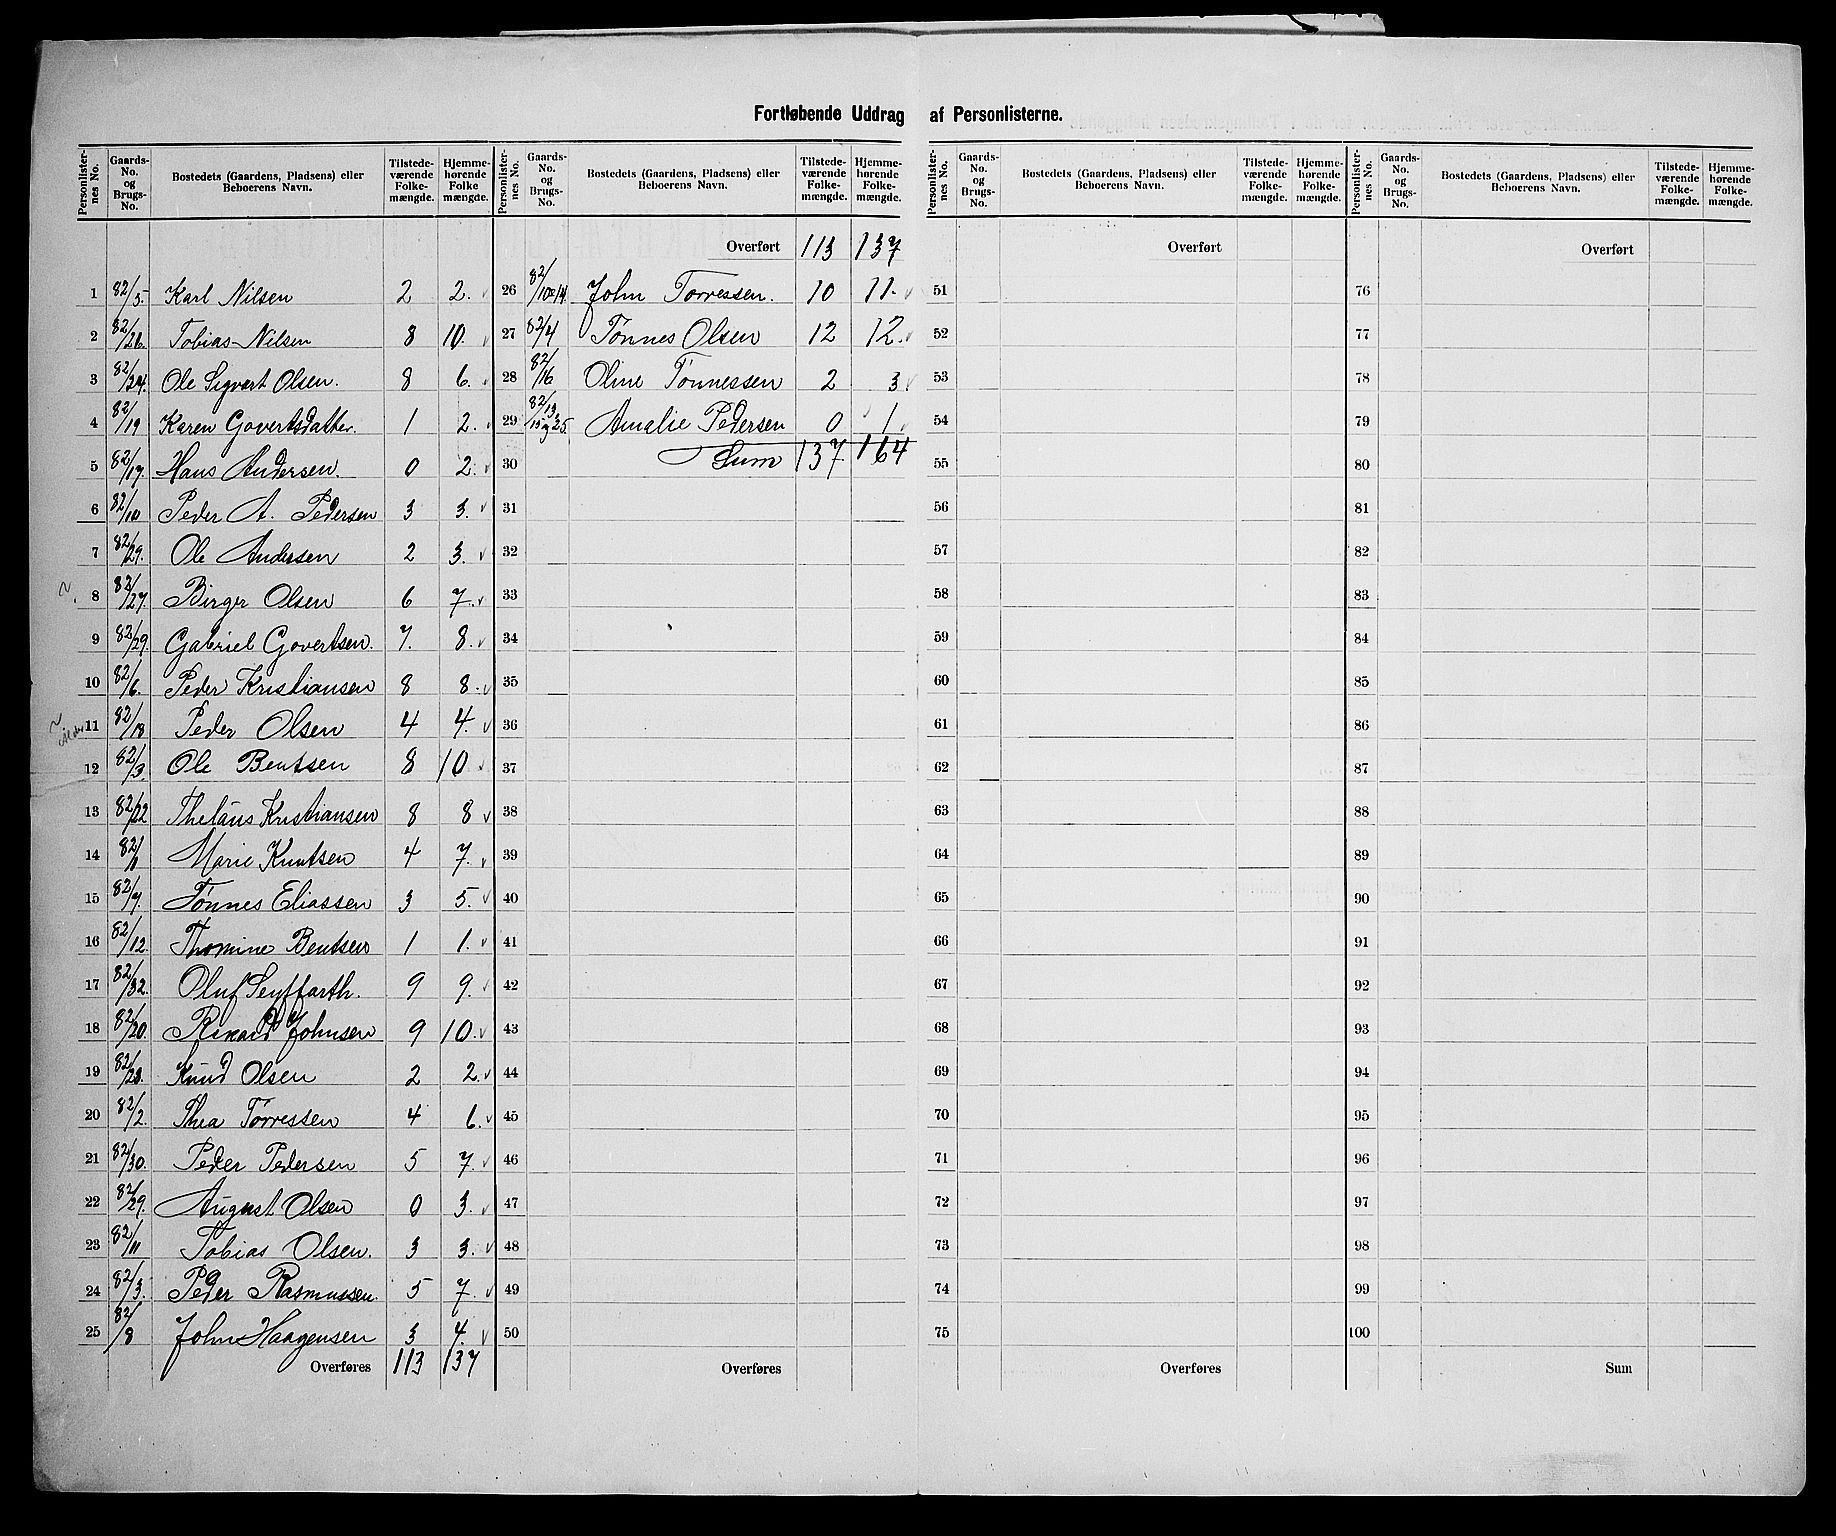 Fortløbende Uddrag af Personlisterne.
Personlister-nes No. | Gaards-No. og Brugs-No. | Bostedets (Gaardens, Pladsens) eller Beboerens Navn. | Tilstede-værende Folke-mængde. | Hjemme-hørende Folke mængde.
1 82/5. Karl Nilsen 2 2.
2 82/26. Tobias Nilsen 8 10.
3 82/24. Ole Sigvart Olsen. 8 6.
4 82/19 Karen Govertsdatter. 1 2.
5 82/17. Hans Andersen. 0 2.
6 82/10 Peder A. Pedersen 3 3.
7 82/29. Ole Andersen 2 3.
8 82/27. Birger Olsen 6 7.
9 82/29. Gabriel Govertsen. 7. 8.
10 82/6. Peder Kristiansen 8 8.
11 82/18 Peder Olsen 4 4.
12 82/3. Ole Bentsen 8 10
13 82/22 Theláus Kristiansen 8 8
14 82/1 Marie Knutsen 4 7.
15 82/9. Tønnes Eliassen 3 5.
16 82/12. Thomine Bentsen 1 1.
17 82/32. Oluf Seyffarth. 9 9.
18 82/20. Rikard Johnsen 9 10.
19 82/23. Knud Olsen 2 2.
20 82/2. Thea Torressen 4 6.
21 82/30. Peder Pedersen 5 7.
22 82/29. August Olsen 0 3.
23 82/11 Tobias Olsen. 3 3.
24 82/3. Peder Rasmussen. 5 7.
25 82/8 John Haagensen 3 4.
Overføres 113 137
Personlister-nes No. | Gaards-No. og Brugs-No. | Bostedets (Gaardens, Pladsens) eller Beboerens Navn. | Tilstede-værende Folke-mængde. | Hjemme-hørende Folke-mængde.
Overført 113 137
26 82/10 14. John Torressen. 10 11.
27 82/4 Tønnes Olsen 12 12.
28 82/16 Oline Tonnessen 2 3
29 82/13 15 og 25. Amalie Pedersen 0 1
30 Sum 137. 164
31
32
33
34
35
36
37
38
39
40
41
42
43
44
45
46
47
48
49
50
Overføres
Personlister-nes No. | Gaards-No. og Brugs-No. | Bostedets (Gaardens, Pladsens) eller Beboerens Navn. | Tilstede-værende Folke-mængde. | Hjemme-hørende Folke-mængde.
Overført
51
52
53
54
55
56
57
58
59
60
61
62
63
64
65
66
67
68
69
70
71
72
73
74
75
Overføres
Personlister-nes No. | Gaards-No. og Brugs-No. | Bostedets (Gaardens, Pladsens) eller Beboerens Navn. | Tilstede-værende Folke-mængde. | Hjemme-hørende Folke-mængde.
Overført
76
77
78
79
80
81
82
83
84
85
86
87
88
89
90
91
92
93
94
95
96
97
98
99
100
Sum